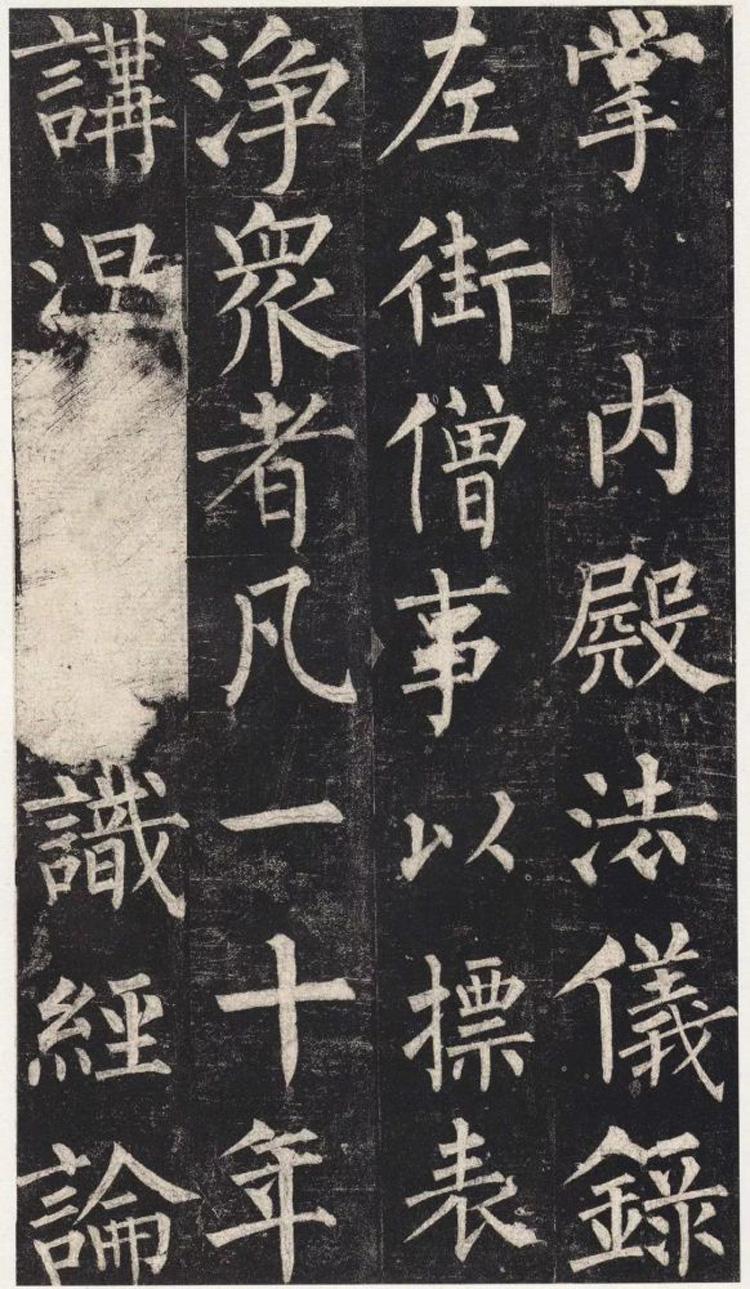 掌 内殿法儀錄
左街僧事以摽表
浄衆者凡一十年
講涅 識經論